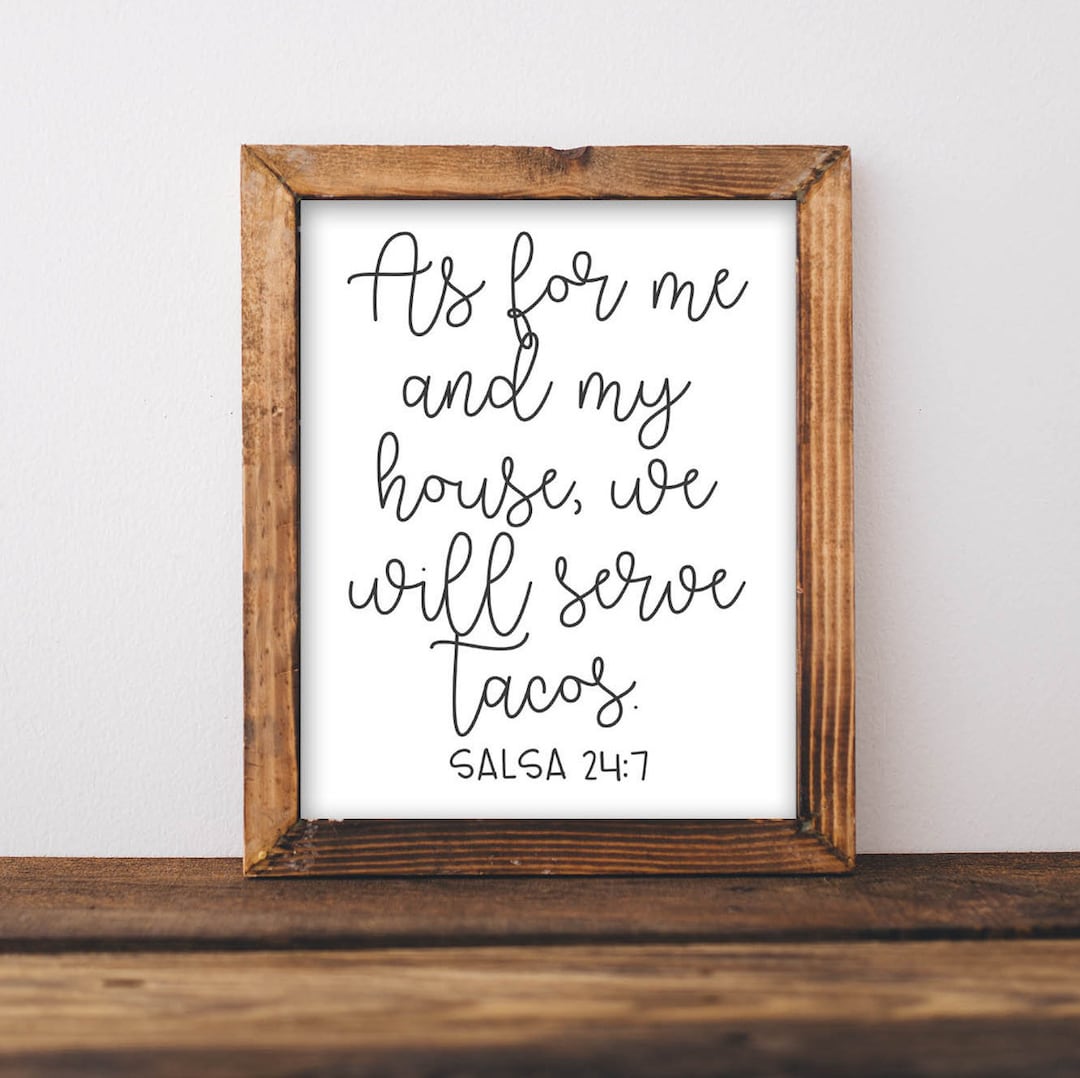 As for me
and my
house, we
will serve
Tacos.
SALSA 24:7